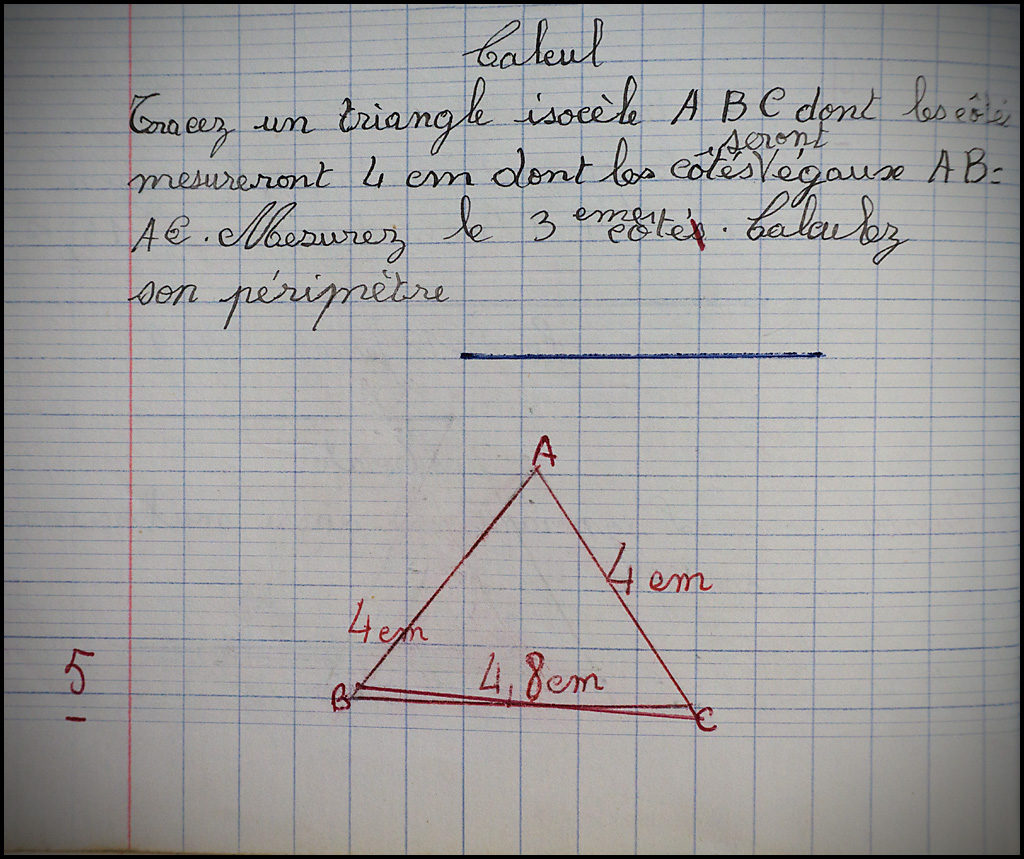 Calcul
Tracez un triangle isocèle A B C dont les côtés
mesureront 4 cm dont les côtés seront égaux AB=
AC. Mesurez le 3 eme côté. Calculez
son périmètre
A
4 cm
4 cm
4,8 cm
B
C
5